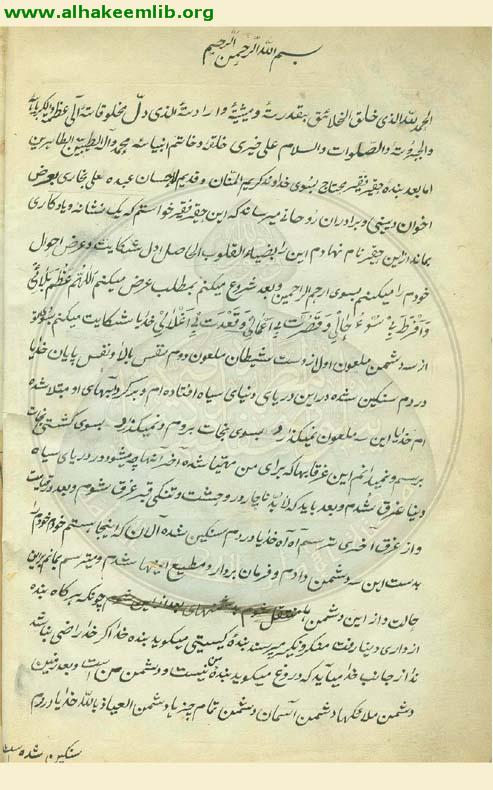 www.alhakeemlib.org
بسم الله الرحمن الرحیم
الحمد لله الذی خلق الخلائق بقدرته و مشیته و ارادته الذی دل مخلوقاته الی عظمته
والصلوات والسلام علی خیر خلقه و خاتم انبیائه محمد و آله الطیبین الطاهرین
اما بعد بنده حقیر فقیر محتاج بسوی خداوند کریم المنان و قدیم الاحسان عبده علی بخاری بعرض
اخوان دینی و برادران روحانی میرساند که این حقیر فقیر خواستم که یک نشانه و یادکاری
بماند از این حقیر نام نهادم این را ضیاء القلوب الی اصل دل شکایت و عرض احوال
خودم را میکنم بسوی ارحم الراحمین و بعد شروع میکنم بمطلب عرض میکنم اللهم عظم بلائی
و افرط بی سوء حالی و قصرت بی اعمالی و قعدت بی اغلالی خدایا شکایت میکنم
از سه دشمن ملعون اول از دست شیطان ملعون دوم نفس بالا و نفس پایان خدایا
دردم سنکین شده در این دریای دنیای سیاه افتاده ام و بر کردابهای او مبتلا شده
ام خدایا این سه ملعون نمیکذارد بسوی نجات بروم و نمیکذارد بسوی کشتی نجات
برسم و نمیدانم این غرقابها که برای من مهیا شده اخر انها چه میشود در دریای سیاه
دنیا غرق شدم و بعد باید که لابد ناچار در وحشت و تنکی قبر غرق شوم و بعد
و از غرق آخری ترسم آه آه خدایا دردم سنکین شده الآن که اینجا هستم خودم خودم را
بدست این سه دشمن دادم و فرمان بردار و مطیع اینها شدم و میترسم بمانم براین
حالت و از این دشمن چونکه هرکاه بنده
از داری دنیا رفت منکر و نکیر میپرسند بنده کیستی میکوید بنده خدا اکر خدا راضی نباشد
ندا از جانب خدا میآید که دروغ میکوید بنده من نیست و دشمن من است و بعد زمین
دشمن ملائکها دشمن آسمان دشمن تمام چیزها دشمن العیاذ بالله خدایا دردم
سنکین شده